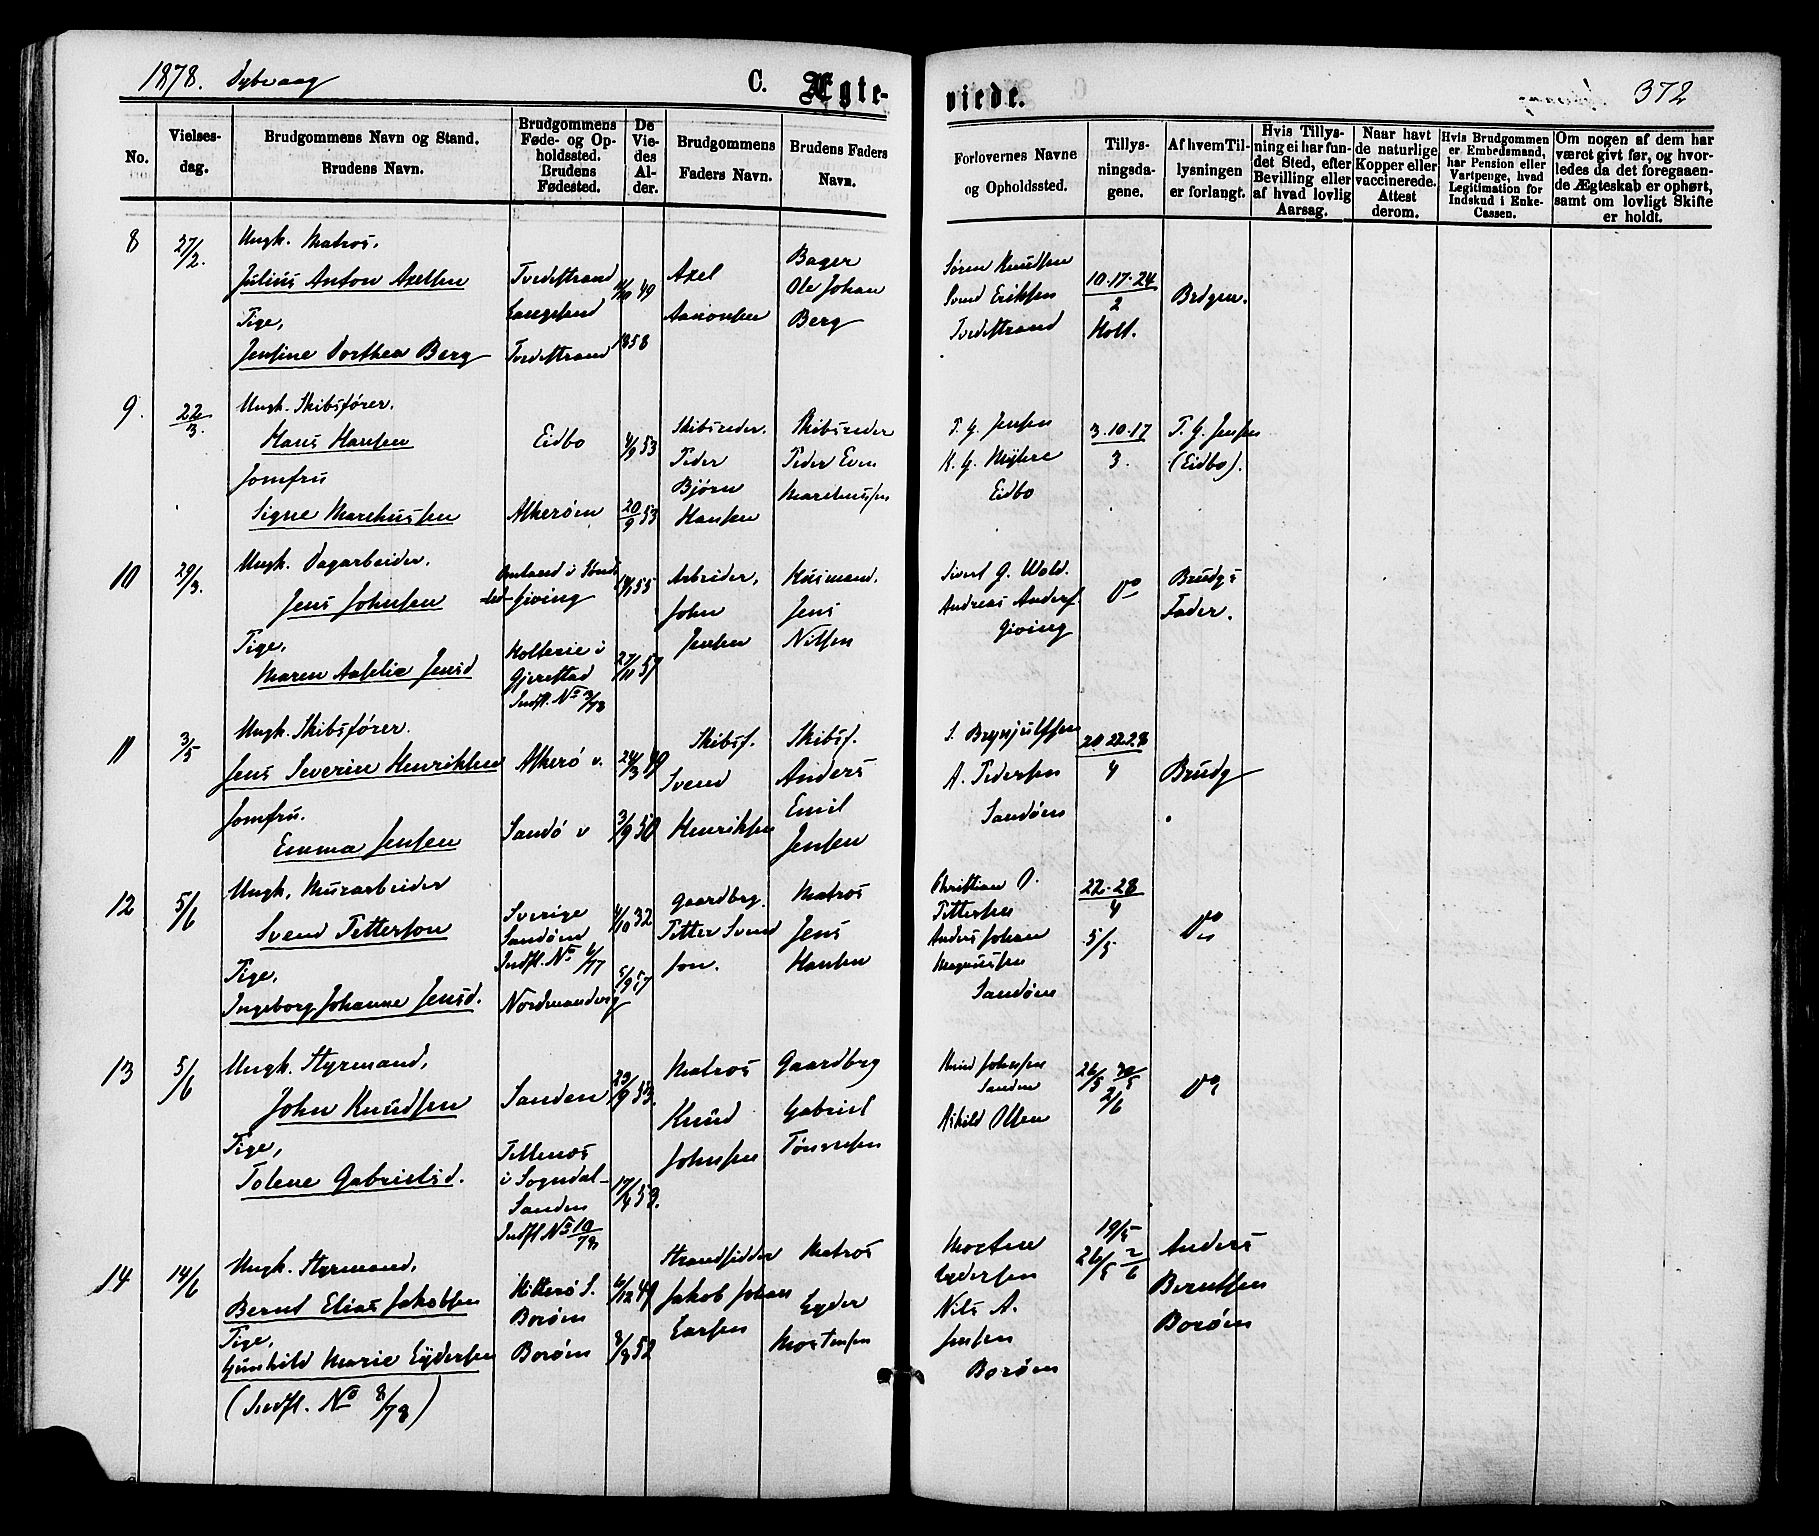 1878. Dybvaag
C. Ægte-
viede.
372
No.
Vielses-
dag.
Brudgommens Navn og Stand.
Brudens Navn.
Brudgommens
Føde- og Op-
holdssted.
Brudens
Fødested.
De
Vie-
des
Al-
der.
Brudgommens
Faders Navn.
Brudens Faders
Navn.
Forlovernes Navne
og Opholdssted.
Tillys-
ningsda-
gene.
Af hvem Til-
lysningen
er forlangt.
Hvis Tillys-
ning ei har fun-
det Sted, efter
Bevilling eller
af hvad lovlig
Aarsag.
Naar havt
de naturlige
Kopper eller
vaccinerede.
Attest
derom.
Hvis Brudgommen
er Embedsmand,
har Pension eller
Vartpenge, hvad
Legitimation for
Indskud i Enke-
Cassen.
Om nogen af dem har
været givt før, og hvor-
ledes da det foregaaen-
de Ægteskab er ophørt,
samt om lovligt Skifte
er holdt.
8
27/2.
Ungk. Matros.
Julius Anton Axelsen
Pige,
Jensine Dorthea Berg
Tvedestrand
Langesund
Tvedestrand
49
1858
Axel
Aanonsen
Bager
Ole Johan
Berg
Søren Knudsen
Svend Eriksen
Tvedestrand
10.17.24
2
Holt.
Brdgm.
9.
22/3.
Ungk. Skibsfører.
Hans Hansen
Jomfru
Signe Marchussen
Eidbo
Alkerøen
53
20/9 53
Skibsreder.
Peder
Bjørn
Hansen
Skibsreder
Peder Even
Marchussen
T. G. Jensen
K. G. Myhre
Eidbo
3.10.17
3.
T. G. Jensen
(Eidbo).
10
29/3.
Ungk. Dagarbeider.
Jens Johnsen
Pige,
Maren Aaselie Jensd
Giving
Holterie i
Gjerestad
Indfl. No 3/78
55
27/11 57
Arbeider,
John
Jensen
Husmand.
Jens
Nilsen
Sivert G. Wold.
Andreas Anders.
Giving
Do
Brudgs
Fader.
11
3/5
Ungk. Skibsfører.
Jens Severin Henriksen
Jomfru.
Emma Jensen
Alkerø v.
Sandø v
24/3 49
3/9 50
Skibsf.
Svend
Henriksen
Skibsf.
Anders
Emil
Jensen
S. Brynjulfsen
A. Pedersen
Sandøen
20.22.28
4
Brudg
12
5/6
Ungk. Murarbeider
Svend Petterson
Pige,
Ingeborg Johanne Jensd.
Sverige
Sandøen
Indfl. No 6/77
Nordmandvig
4/10 32
5/9 57
Gaardbrg.
Petter Svend
son.
Matros
Jens
Hansen
Christian O.
Pettersen
Anders Johan
Magnussen
Sandøen
22.28
4
5/5.
Do
13
5/6
Ungk. Styrmand,
John Knudsen
Pige,
Tolene Gabrielsd.
Sanden
Tellenæs
i Sogndal-
Sanden
Indfl No 10/78
23/9 53.
17/4 59.
Matros
Knud
Johnsen
Gaardbrg
Gabriel
Tønnesen
Knud Johnsen
Sanden
Askild Olsen
26/5 30/5
2/6
Do
14
14/6
Ungk. Styrmand,
Bernt Elias Jakobsen
Pige,
Gunhild Marie Eydersen
(Indfl. No 8/78)
Hitterø S.
Borøen
Borøen
6/12 49
8/8 52
Strandsidder
Jakob Johan
Larsen
Matros
Eyder
Mortensen
Morten
Eydersen
Nils A.
Jensen
Borøen
19/5
26/5 2/6
Anders
Berntsen
Borøen